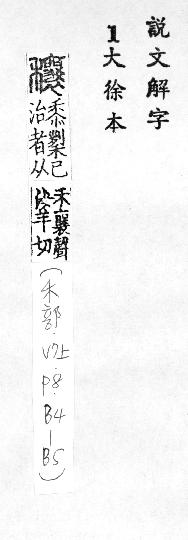 説文解字
1大徐本
穰
黍已
治者从
禾襄聲
汝羊切
(禾部.V7上.P8.B4—B5)